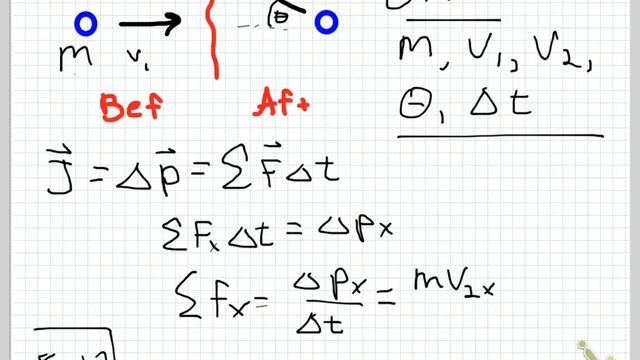 θ
m v₁
Bef Aft
m, v₁, v₂,
θ, Δt
J⃗ = Δp⃗ = ΣF⃗Δt
ΣFₓ Δt = Δpₓ
ΣFₓ = Δpₓ/Δt = mv₂ₓ